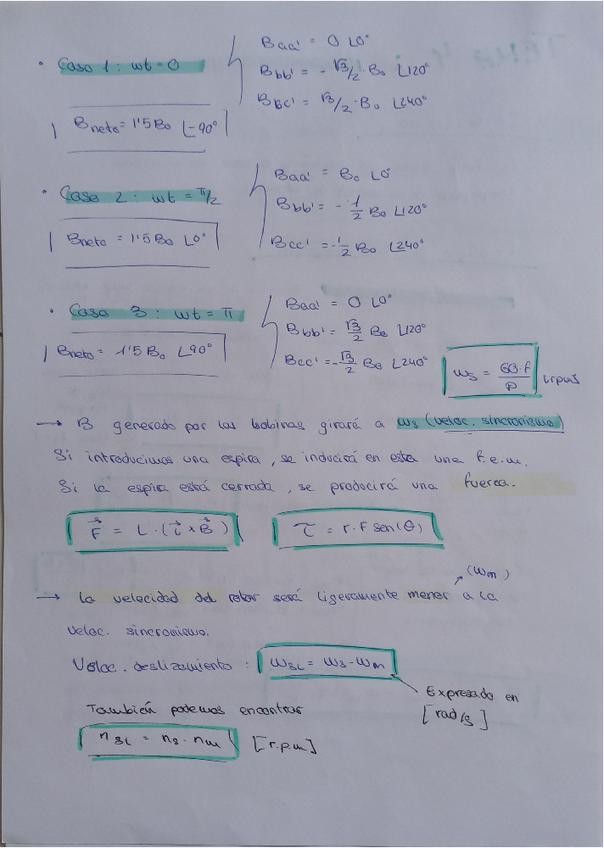 • Caso 1: wt = 0
Baa' = 0 ∟0°
Bbb' = - √3/2 · B₀ ∟120°
Bcc' = √3/2 · B₀ ∟240°
Bneto = 1'5 B₀ ∟-90°
• Caso 2: wt = π/2
Baa' = B₀ ∟0°
Bbb' = - 1/2 B₀ ∟120°
Bcc' = - 1/2 B₀ ∟240°
Bneto = 1'5 B₀ ∟0°
• Caso 3: wt = π
Baa' = 0 ∟0°
Bbb' = √3/2 B₀ ∟120°
Bcc' = - √3/2 B₀ ∟240°
Bneto = 1'5 B₀ ∟90°
ws = 60·f/p [rpm]
→ B generado por las bobinas girará a ws (veloc. sincronismo)
Si introducimos una espira, se inducirá en esta una f.e.m.
Si la espira está cerrada, se producirá una fuerza.
F⃗ = L · (i⃗ x B⃗)
τ = r · F sen(θ)
(wm)
→ La velocidad del rotor será ligeramente menor a la
veloc. sincronismo.
Veloc. deslizamiento: wSL = ws - wm
Expresado en
[rad/s]
También podemos encontrar
nSL = ns - nm [r.p.m]